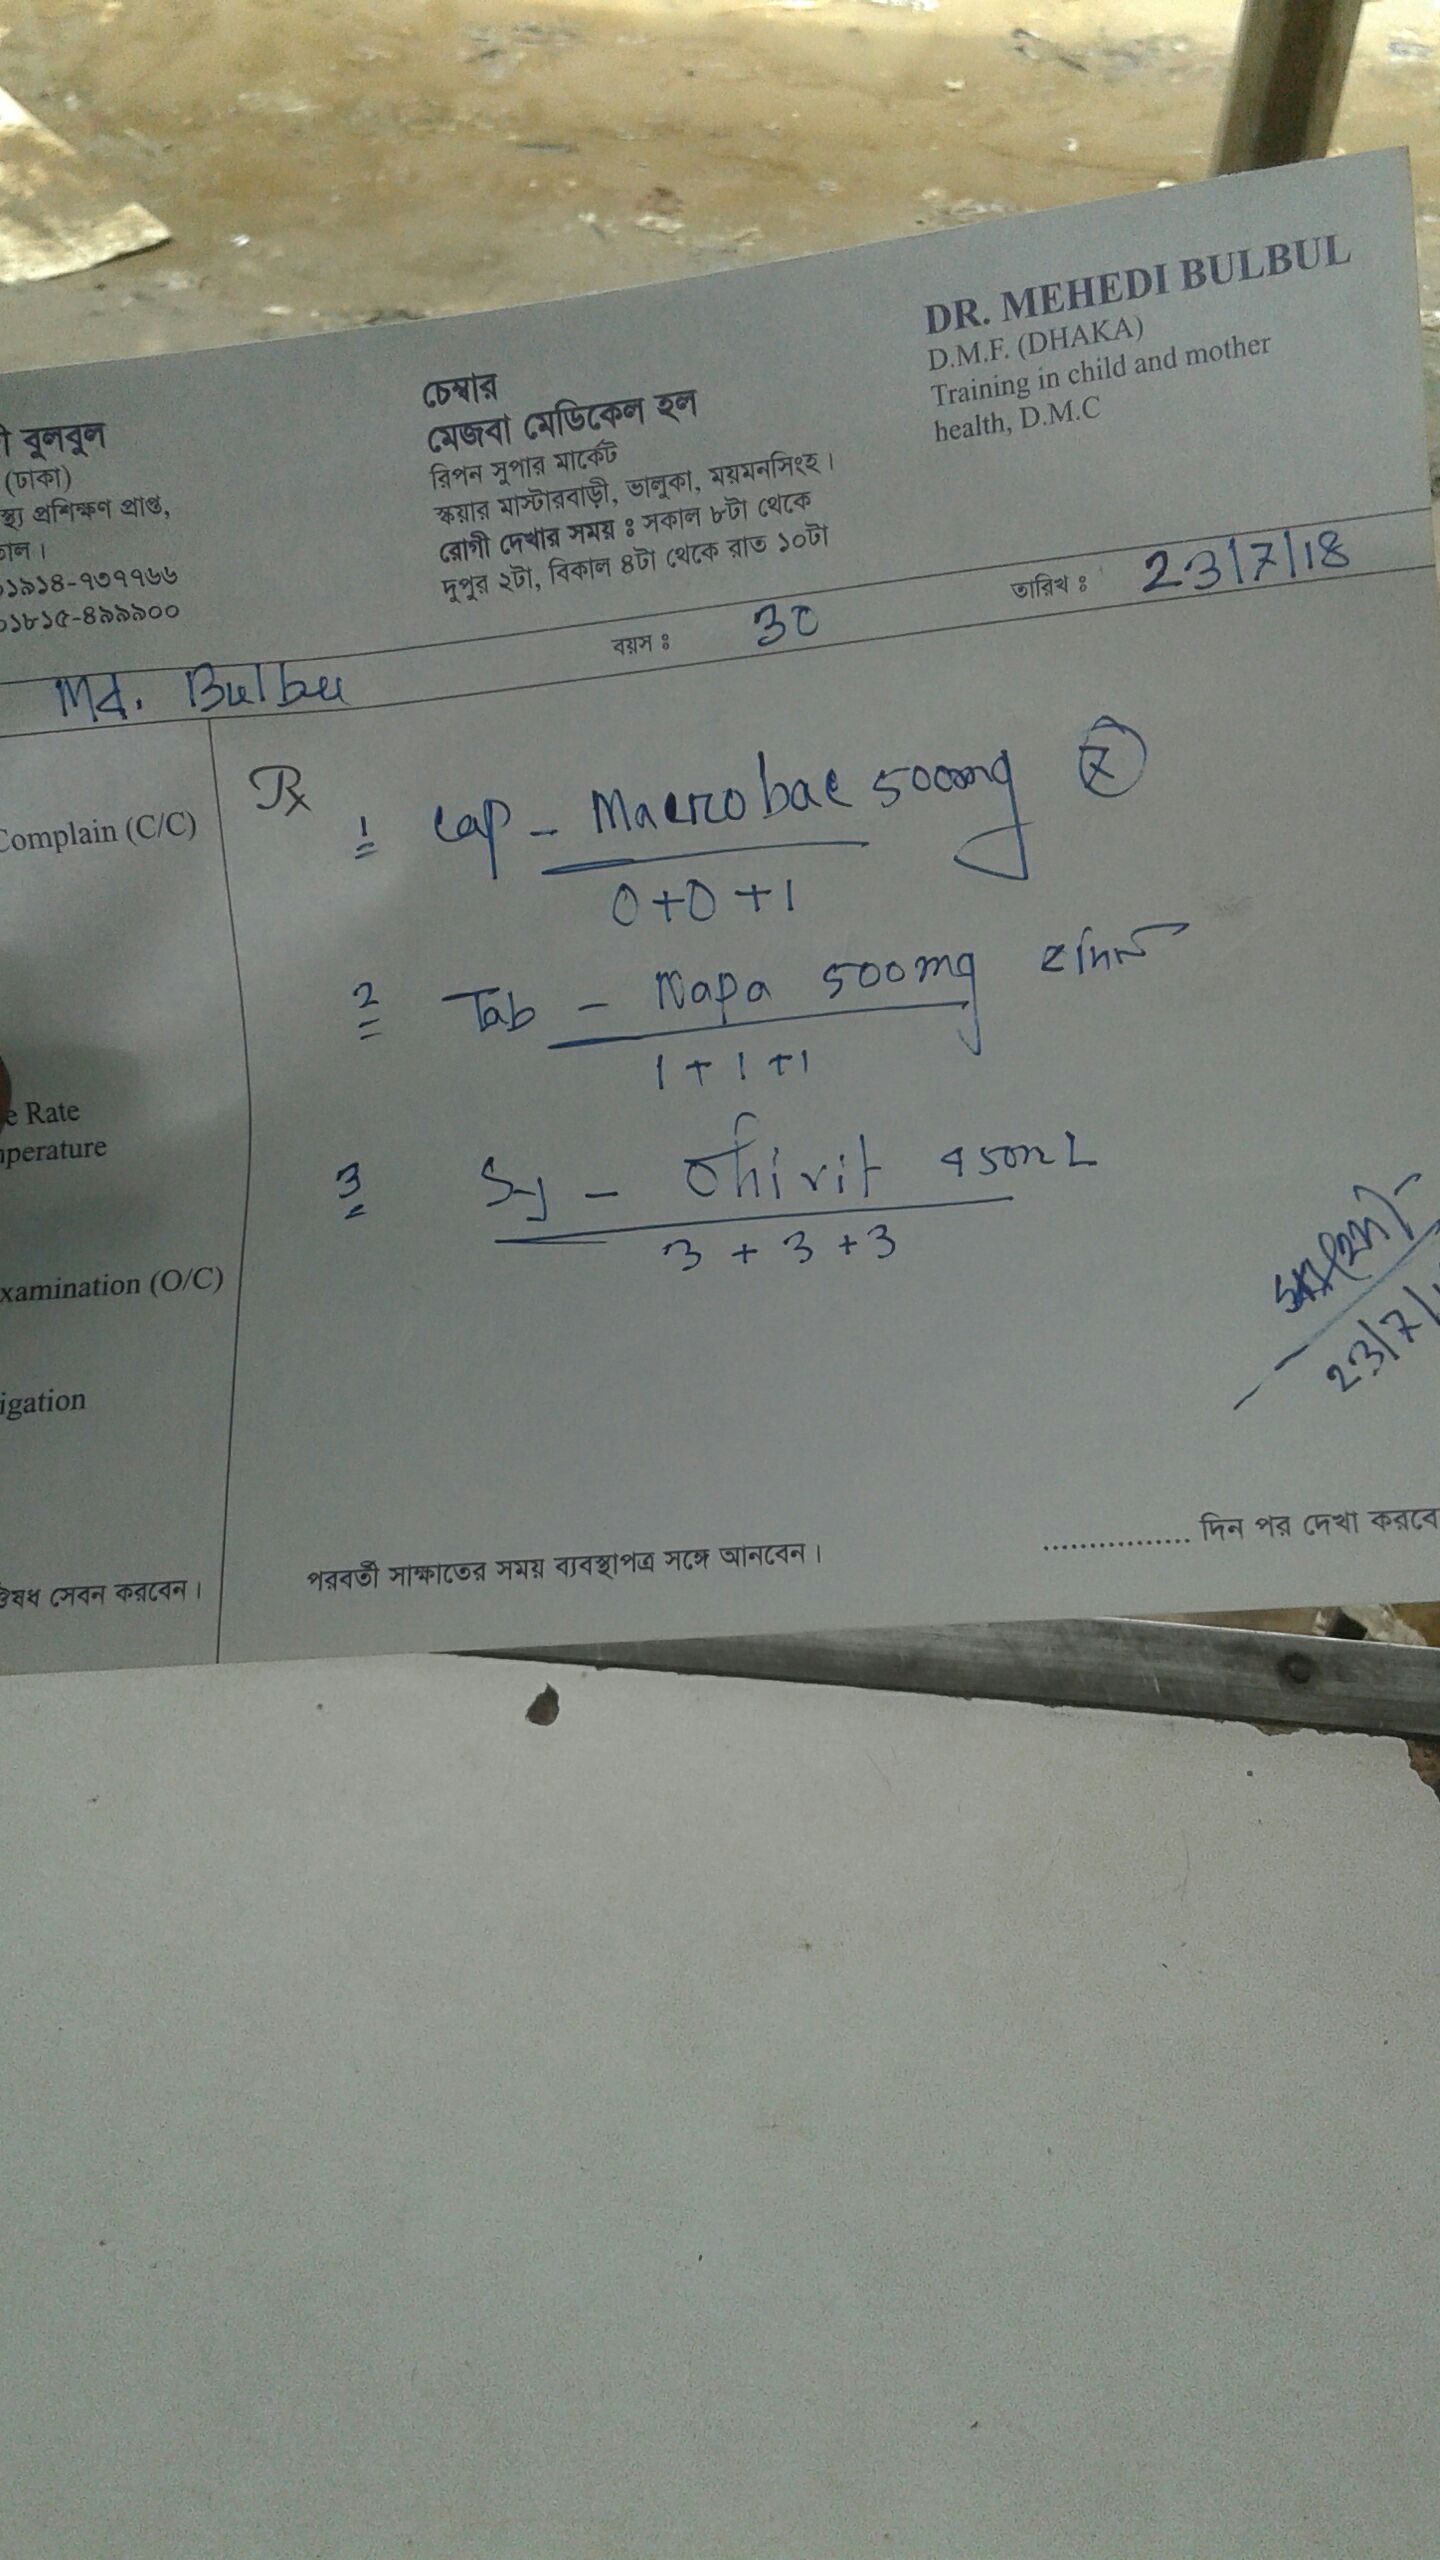 ী বুলবুল
(ঢাকা)
স্থ্য প্রশিক্ষণ প্রাপ্ত,
০১৯১৪-৭৩৭৭৬৬
০১৮১৫-৪৯৯৯০০
চেম্বার
মেজবা মেডিকেল হল
রিপন সুপার মার্কেট
স্কয়ার মাস্টারবাড়ী, ভালুকা, ময়মনসিংহ।
রোগী দেখার সময় : সকাল ৮টা থেকে
দুপুর ২টা, বিকাল ৪টা থেকে রাত ১০টা
DR. MEHEDI BULBUL
D.M.F. (DHAKA)
Training in child and mother
health, D.M.C
Md. Bulbu বয়স : 30 তারিখ : 23/7/18
Complain (C/C)
e Rate
perature
xamination (O/C)
igation
ঔষধ সেবন করবেন।
Rx
1 Cap - Macrobac 500mg 7
0+0+1
2 Tab - Napa 500mg
1+1+1
3 Sy - 450mL
3+3+3
23/7/
পরবর্তী সাক্ষাতের সময় ব্যবস্থাপত্র সঙ্গে আনবেন।
................ দিন পর দেখা করবে